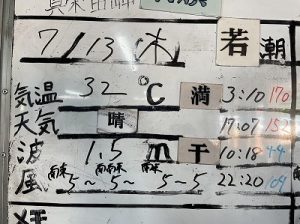 7/13 木 若潮
気温 32 ℃ 満 3:10 170
天気 晴 17:07 152
波 1.5 m 干 10:18 44
風 南東5～南南東5～南東5～5 22:20 109